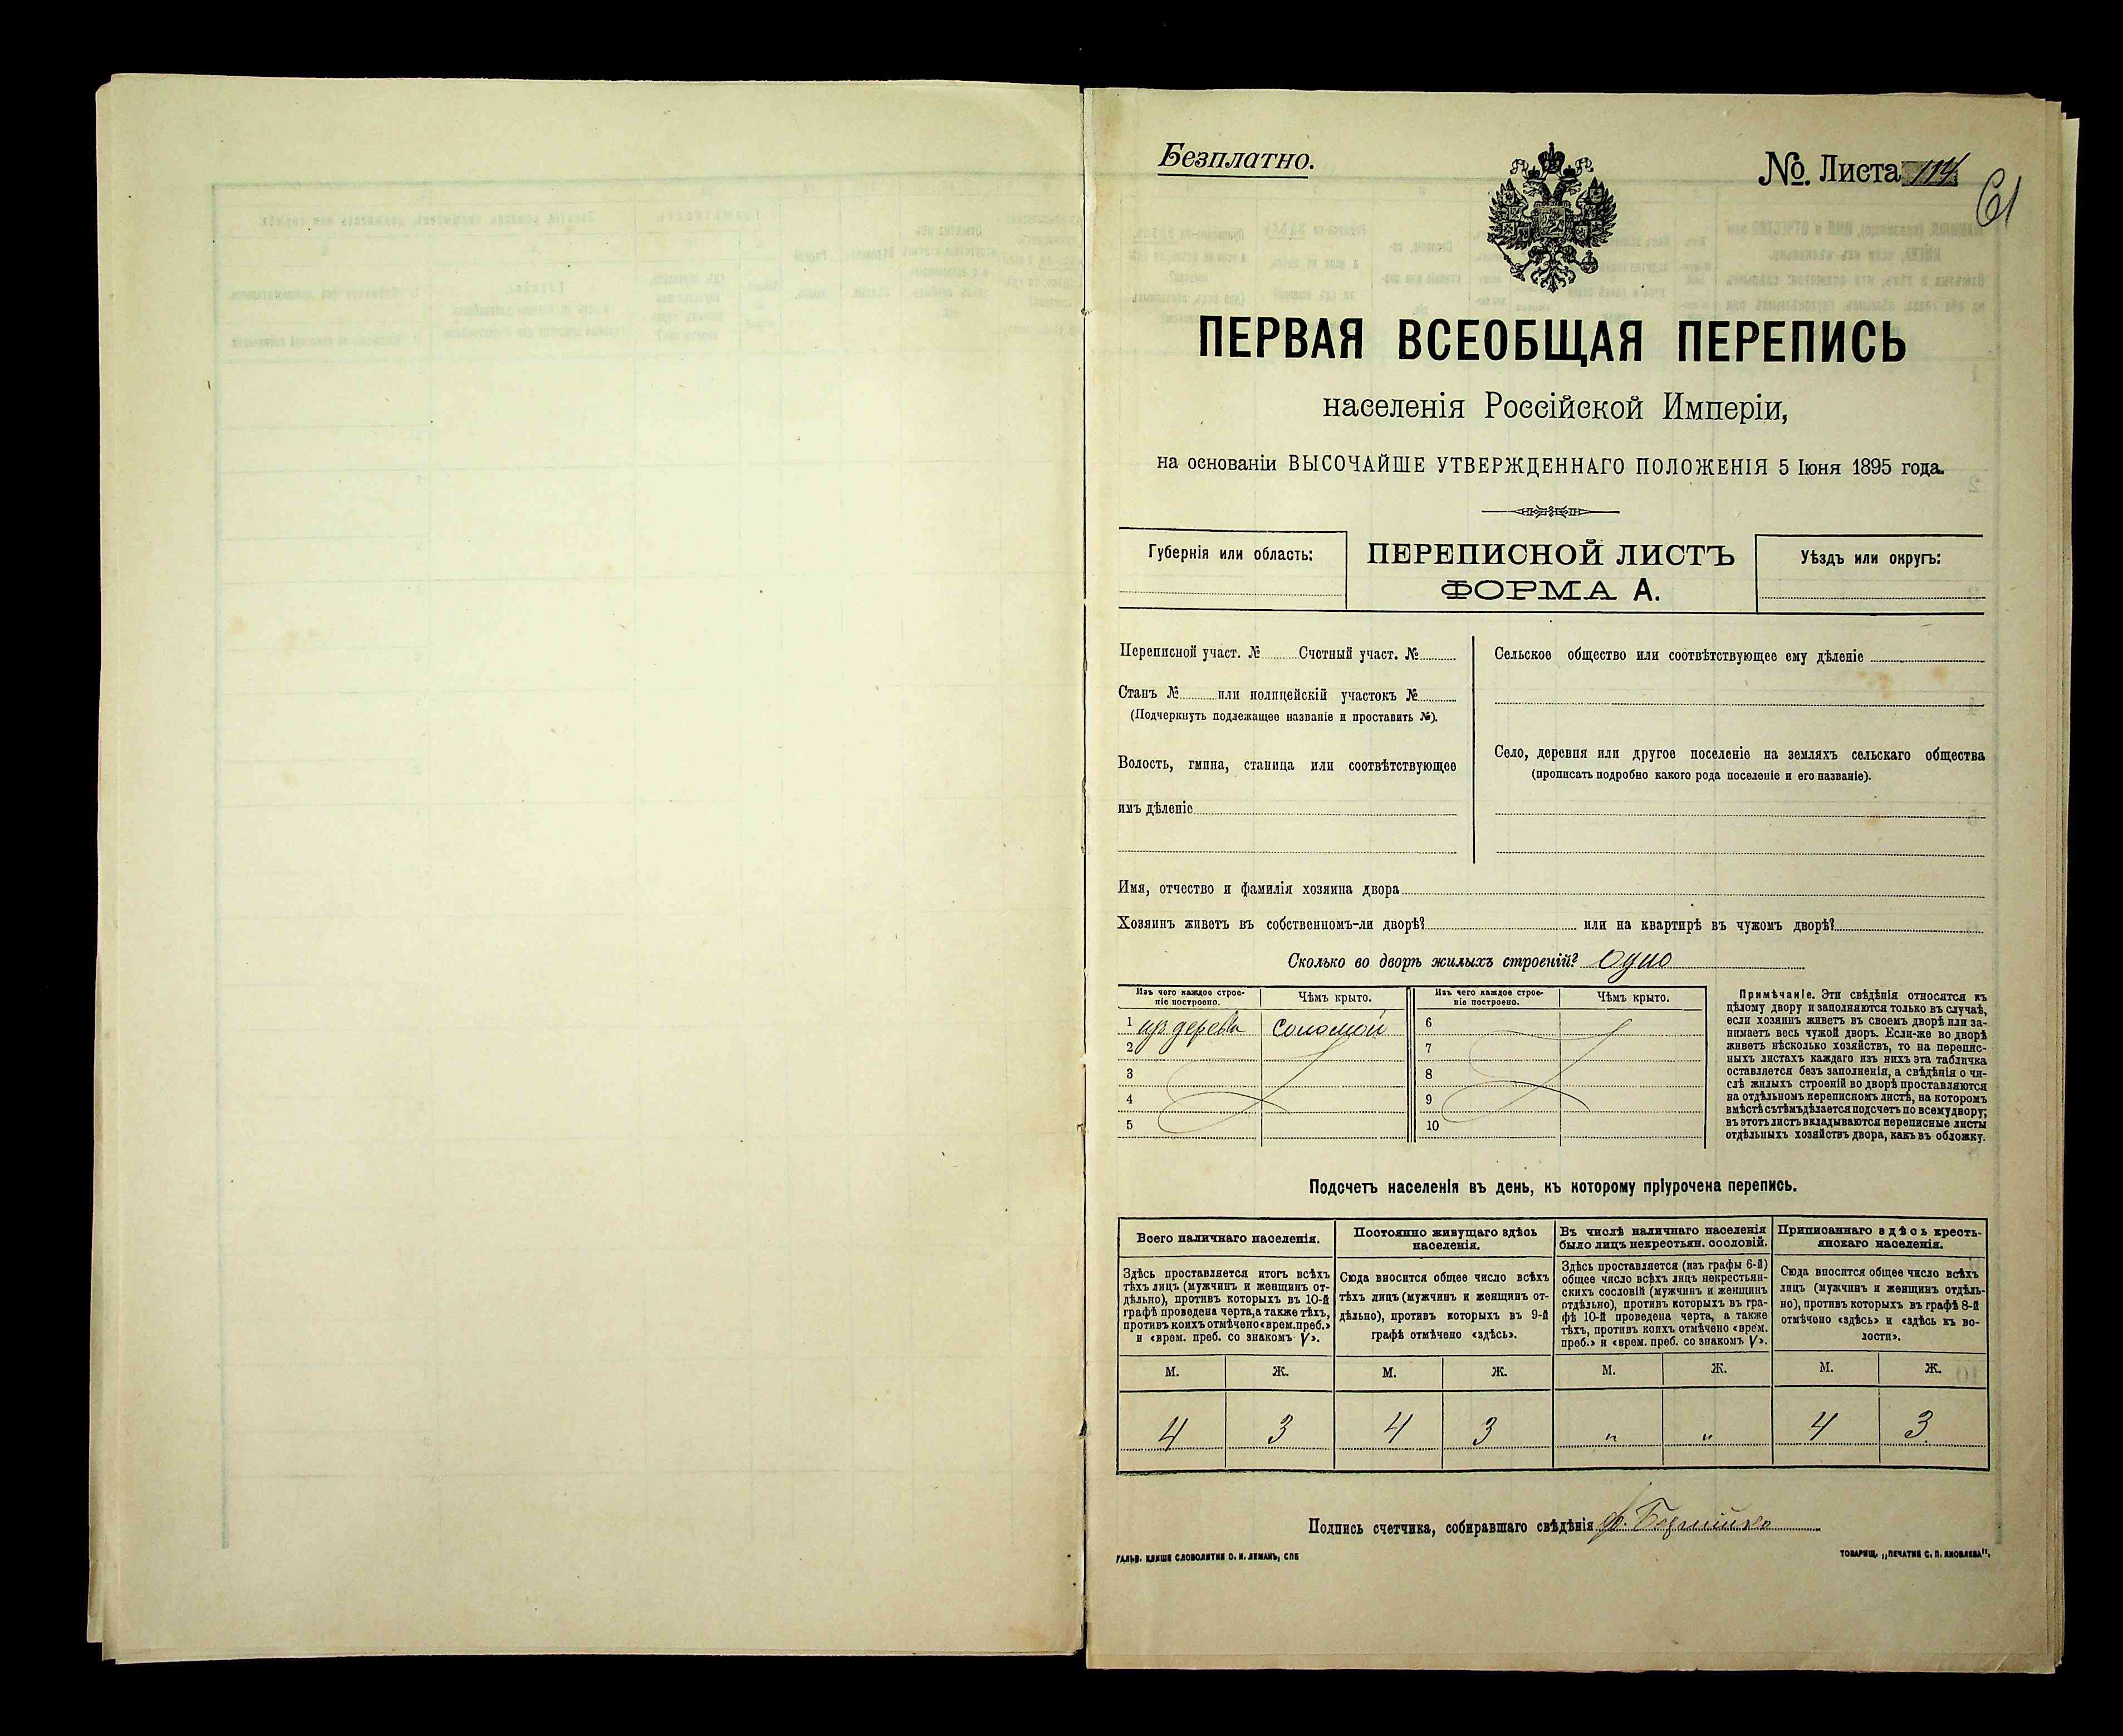 Безплатно.
№. Листа 114
61
ПЕРВАЯ ВСЕОБЩАЯ ПЕРЕПИСЬ
населенія Россійской Имперіи,
на основаніи ВЫСОЧАЙШЕ УТВЕРЖДЕННАГО ПОЛОЖЕНІЯ 5 Іюня 1895 года.
Губернія или область:
ПЕРЕПИСНОЙ ЛИСТЪ
ФОРМА А.
Уѣздъ или округъ:
Переписной участ. № Счетный участ. №
Станъ № или полицейскій участокъ №
(Подчеркнуть подлежащее названіе и проставить №).
Волость, гмина, станица или соотвѣтствующее
имъ дѣленіе
Сельское общество или соотвѣтствующее ему дѣленіе
Село, деревня или другое поселеніе на земляхъ сельскаго общества
(прописать подробно какого рода поселеніе и его названіе).
Имя, отчество и фамилія хозяина двора
Хозяинъ живетъ въ собственномъ-ли дворѣ? или на квартирѣ въ чужомъ дворѣ?
Сколько во дворѣ жилыхъ строеній? Одно
Изъ чего каждое строе-
ніе построено.
Чѣмъ крыто.
Изъ чего каждое строе-
ніе построено.
Чѣмъ крыто.
1 изъ дерева соломой 6
2 7
3 8
4 9
5 10
Примѣчаніе. Эти свѣдѣнія относятся къ
цѣлому двору и заполняются только въ случаѣ,
если хозяинъ живетъ въ своемъ дворѣ или за-
нимаетъ весь чужой дворъ. Если-же во дворѣ
живетъ нѣсколько хозяйствъ, то на перепис-
ныхъ листахъ каждаго изъ нихъ эта табличка
оставляется безъ заполненія, а свѣдѣнія о чи-
слѣ жилыхъ строеній во дворѣ проставляются
на отдѣльномъ переписномъ листѣ, на которомъ
вмѣстѣ съ тѣмъ дѣлается подсчетъ по всему двору;
въ этотъ листъ вкладываются переписные листы
отдѣльныхъ хозяйствъ двора, какъ въ обложку.
Подсчетъ населенія въ день, къ которому пріурочена перепись.
Всего наличнаго населенія.
Здѣсь проставляется итогъ всѣхъ
тѣхъ лицъ (мужчинъ и женщинъ от-
дѣльно), противъ которыхъ въ 10-й
графѣ проведена черта, а также тѣхъ,
противъ коихъ отмѣчено «врем. преб.»
и «врем. преб. со знакомъ V».
Постоянно живущаго здѣсь
населенія.
Сюда вносится общее число всѣхъ
тѣхъ лицъ (мужчинъ и женщинъ от-
дѣльно), противъ которыхъ въ 9-й
графѣ отмѣчено «здѣсь».
Въ числѣ наличнаго населенія
было лицъ некрестьян. сословій.
Здѣсь проставляется (изъ графы 6-й)
общее число всѣхъ лицъ некрестьян-
скихъ сословій (мужчинъ и женщинъ
отдѣльно), противъ которыхъ въ гра-
фѣ 10-й проведена черта, а также
тѣхъ, противъ коихъ отмѣчено «врем.
преб.» и «врем. преб. со знакомъ V».
Приписаннаго здѣсь кресть-
янскаго населенія.
Сюда вносится общее число всѣхъ
лицъ (мужчинъ и женщинъ отдѣль-
но), противъ которыхъ въ графѣ 8-й
отмѣчено «здѣсь» и «здѣсь къ во-
лости».
М. Ж. М. Ж. М. Ж. М. Ж.
4 3 4 3 " " 4 3
Подпись счетчика, собиравшаго свѣдѣнія
ГАЛЬВ. КЛИШЕ СЛОВОЛИТНИ О. И. ЛЕМАНЪ, СПБ
ТОВАРИЩ. „ПЕЧАТНЯ С. П. ЯКОВЛЕВА".